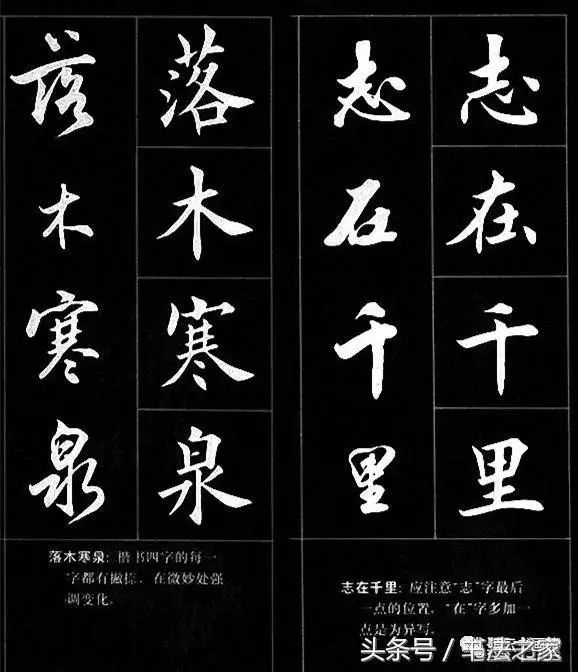 志在千里
志在千里
落木寒泉
落木寒泉
志在千里: 应注意“志”字最后
一点的位置, “在”字多加一
点是为异写.
落木寒泉: 楷书四字的每一
字都有撇捺. 在微妙处强
调变化.
头条号 / 书法之家